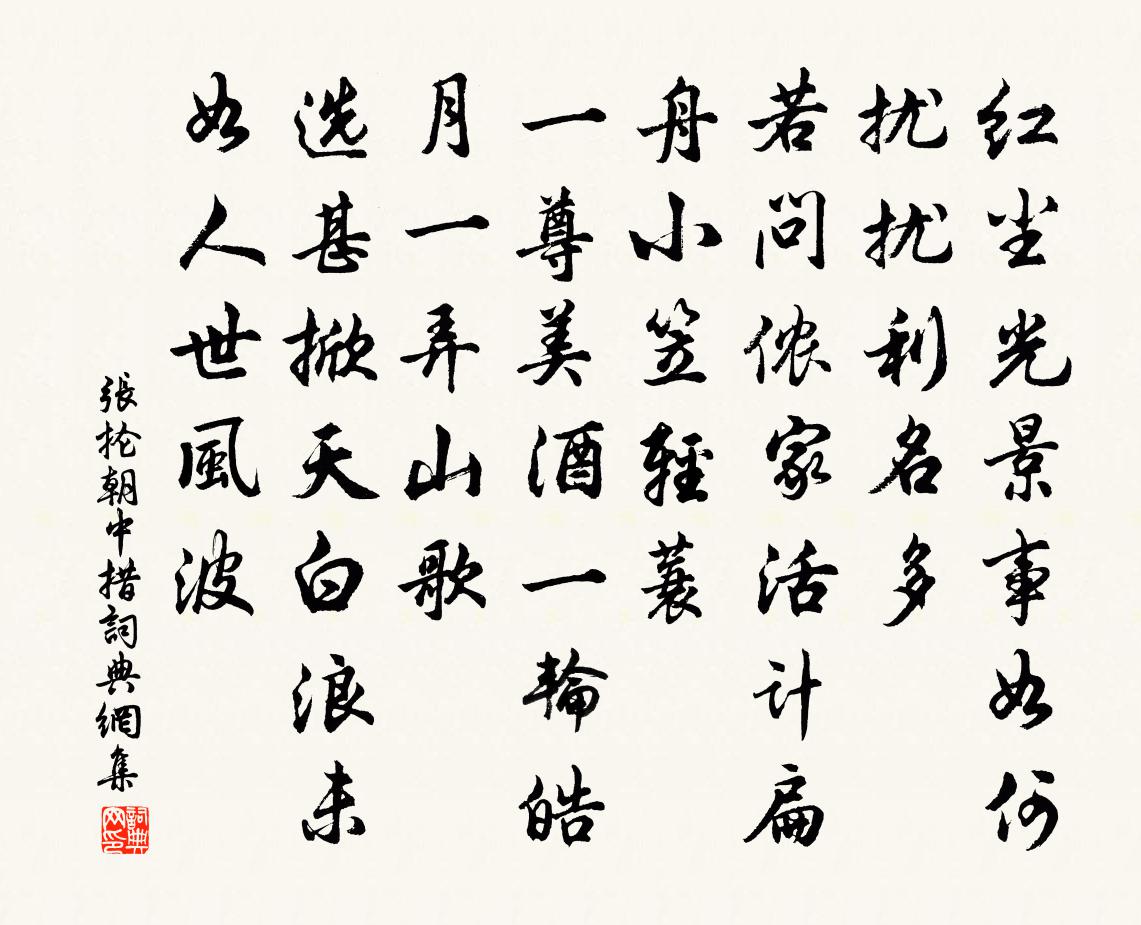 红尘光景事如何
扰扰利名多
若问侬家活计扁
舟小笠輕蓑
一尊美酒一輪皓
月一弄山歌
选甚掀天白浪未
如人世風波
張抡朝中措詞典網集
詞典网印